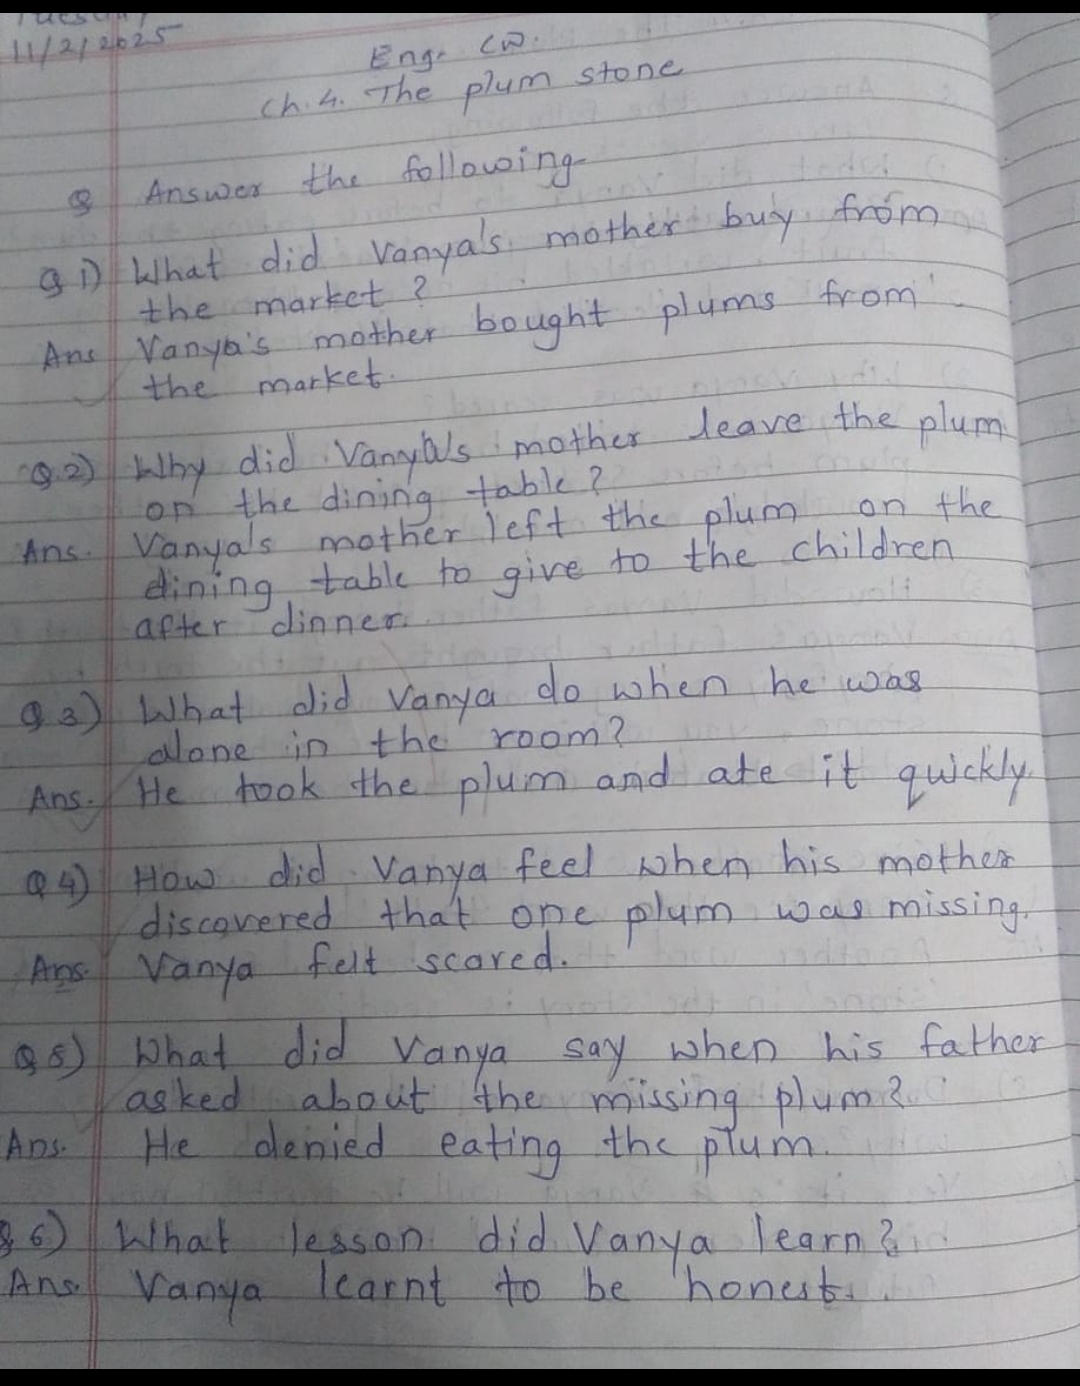 Tuesday
11/2/2025
Eng. CW.
Ch. 4. The plum stone
Q Answer the following
Q 1) What did Vanya's mother buy from
the market ?
Ans Vanya's mother bought plums from
the market.
Q.2) Why did Vanya's mother leave the plum
on the dining table ?
Ans. Vanya's mother left the plum on the
dining table to give to the children
after dinner.
Q 3) What did Vanya do when he was
alone in the room?
Ans. He took the plum and ate it quickly.
Q 4) How did Vanya feel when his mother
discovered that one plum was missing.
Ans. Vanya felt scared.
Q 5) What did Vanya say when his father
asked about the missing plum?
Ans. He denied eating the plum.
Q 6) What lesson did Vanya learn?
Ans. Vanya learnt to be honest.